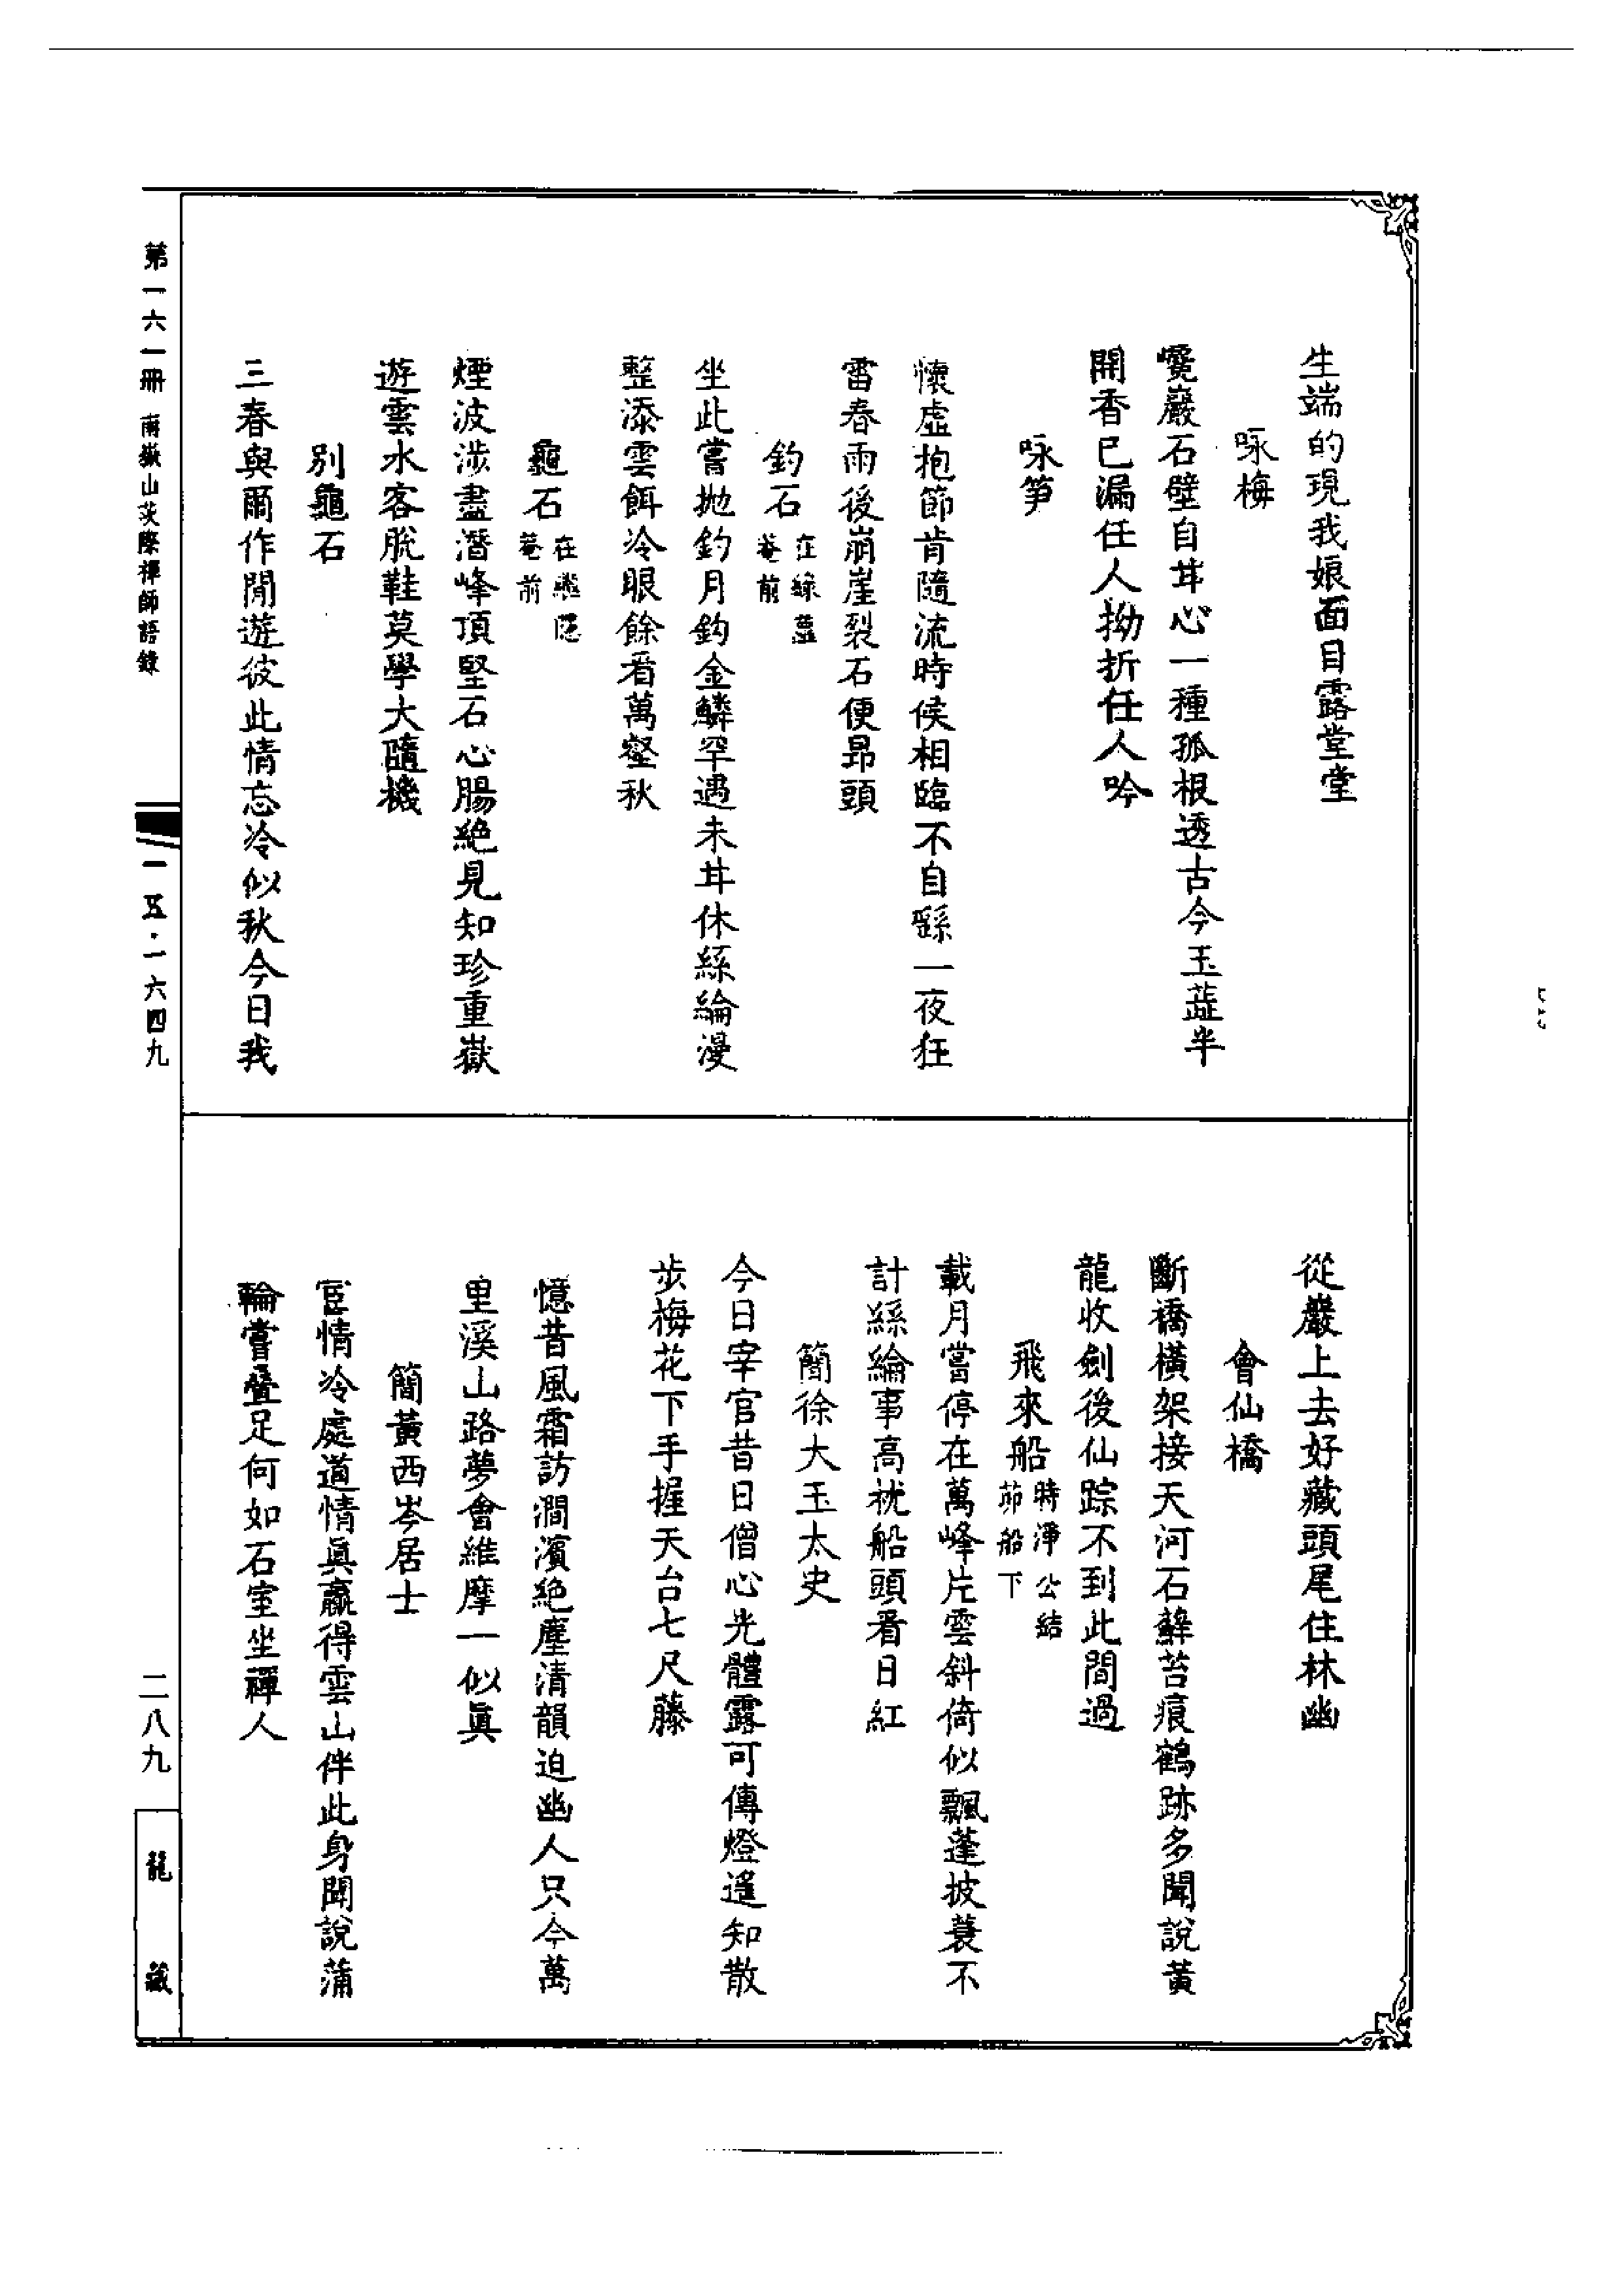 生端的現我娘面目露堂堂
咏梅
甖巖石壁自甘心一種孤根透古今玉蕋半
開香已漏任人拗折任人吟
咏笋
懷虛抱節肯隨流時候相臨不自繇一夜狂
雷春雨後崩崖裂石便昂頭
釣石 在綠蘿菴前
坐此嘗拋釣月鈎金鱗罕遇未甘休絲綸漫
整添雲餌冷眼餘看萬壑秋
龜石 在樂隱菴前
煙波涉盡潛峰頂堅石心腸絕見知珍重嶽
遊雲水客脫鞋莫學大隨機
別龜石
三春與爾作閒遊彼此情忘冷似秋今日我
從巖上去好藏頭尾住林幽
會仙橋
斷橋橫架接天河石蘚苔痕鶴跡多聞說黃
龍收劍後仙踪不到此間過
飛來船 時淨公結茆船下
載月嘗停在萬峰片雲斜倚似飄蓬披蓑不
計絲綸事高祑船頭看日紅
簡徐大玉太史
今日宰官昔日僧心光體露可傳燈遙知散
步梅花下手握天台七尺藤
憶昔風霜訪澗濱絕塵清韻迫幽人只今萬
里溪山路夢會維摩一似眞
簡黃西岑居士
宦情冷處道情眞贏得雲山伴此身聞說蒲
輪嘗疊足何如石室坐禪人
第一六一冊 南嶽山茨際禪師語錄
一五·一六四九
二八九
龍藏